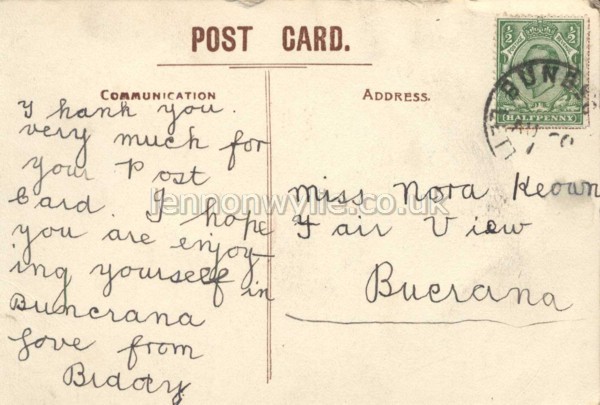 POST CARD.
COMMUNICATION
I hank you
very much for
your Post
Card. I hope
you are enjoy-
ing yourself in
Buncrana
love from
ADDRESS.
Miss Nora Keown
Fair View
Bucrana
½ ½
HALFPENNY
BUNB
lennonwylie.co.uk